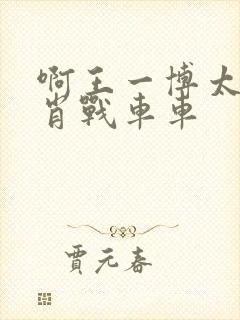 啊王一博太
肖戰車車
賈元春